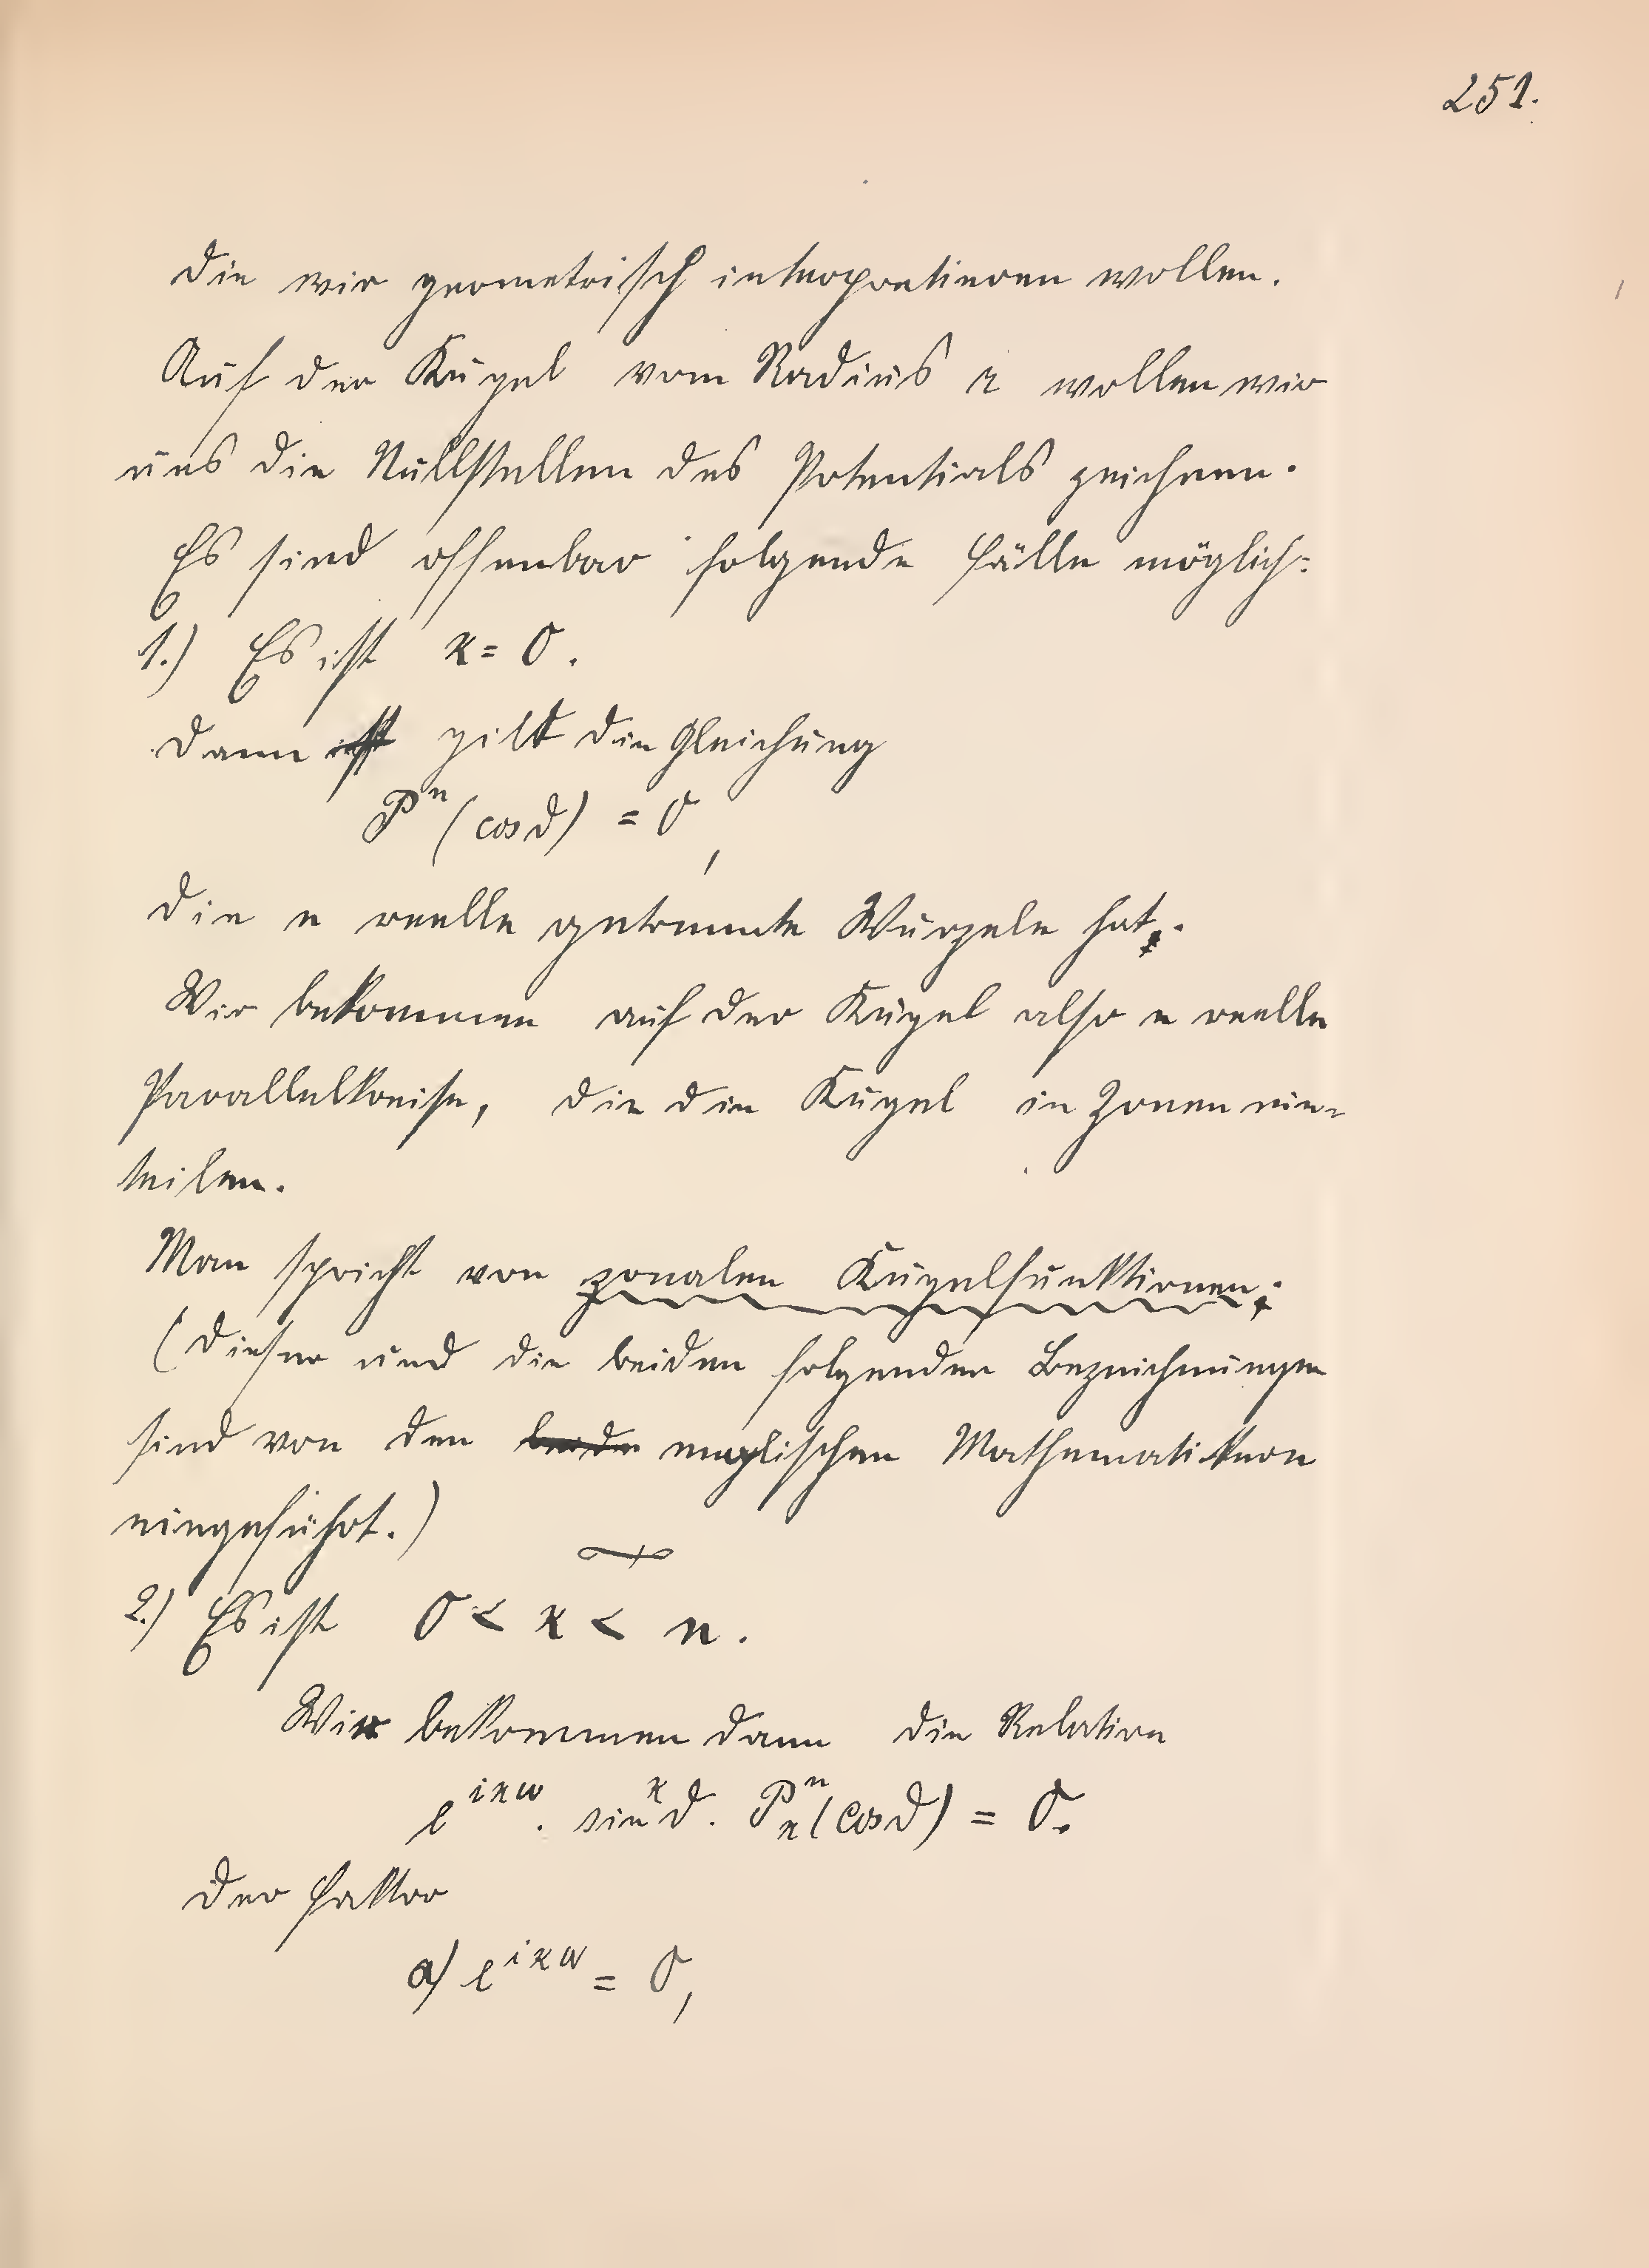 251.
die wir geometrisch interpretieren wollen.
Auf der Kugel vom Radius r wollen wir
uns die Nullstellen des Potentials zeichnen.
Es sind offenbar folgende Fälle möglich:
1.) Es ist ϰ = 0.
Dann ist gilt die Gleichung
Pⁿ (cos ϑ) = 0,
die n reelle getrennte Wurzeln hat.
Wir bekommen auf der Kugel also n reelle
Parallelkreise, die die Kugel in Zonen ein-
teilen.
Man spricht von zonalen Kugelfunktionen.
(Dieser und die beiden folgenden Bezeichnungen
sind von den beiden englischen Mathematikern
eingeführt.)
2.) Es ist 0 < ϰ < n.
Wir bekommen dann die Relation
e^{iϰω} . sin^ϰ ϑ . P^n_ϰ (cos ϑ) = 0.
Der Faktor
a) e^{iϰω} = 0,